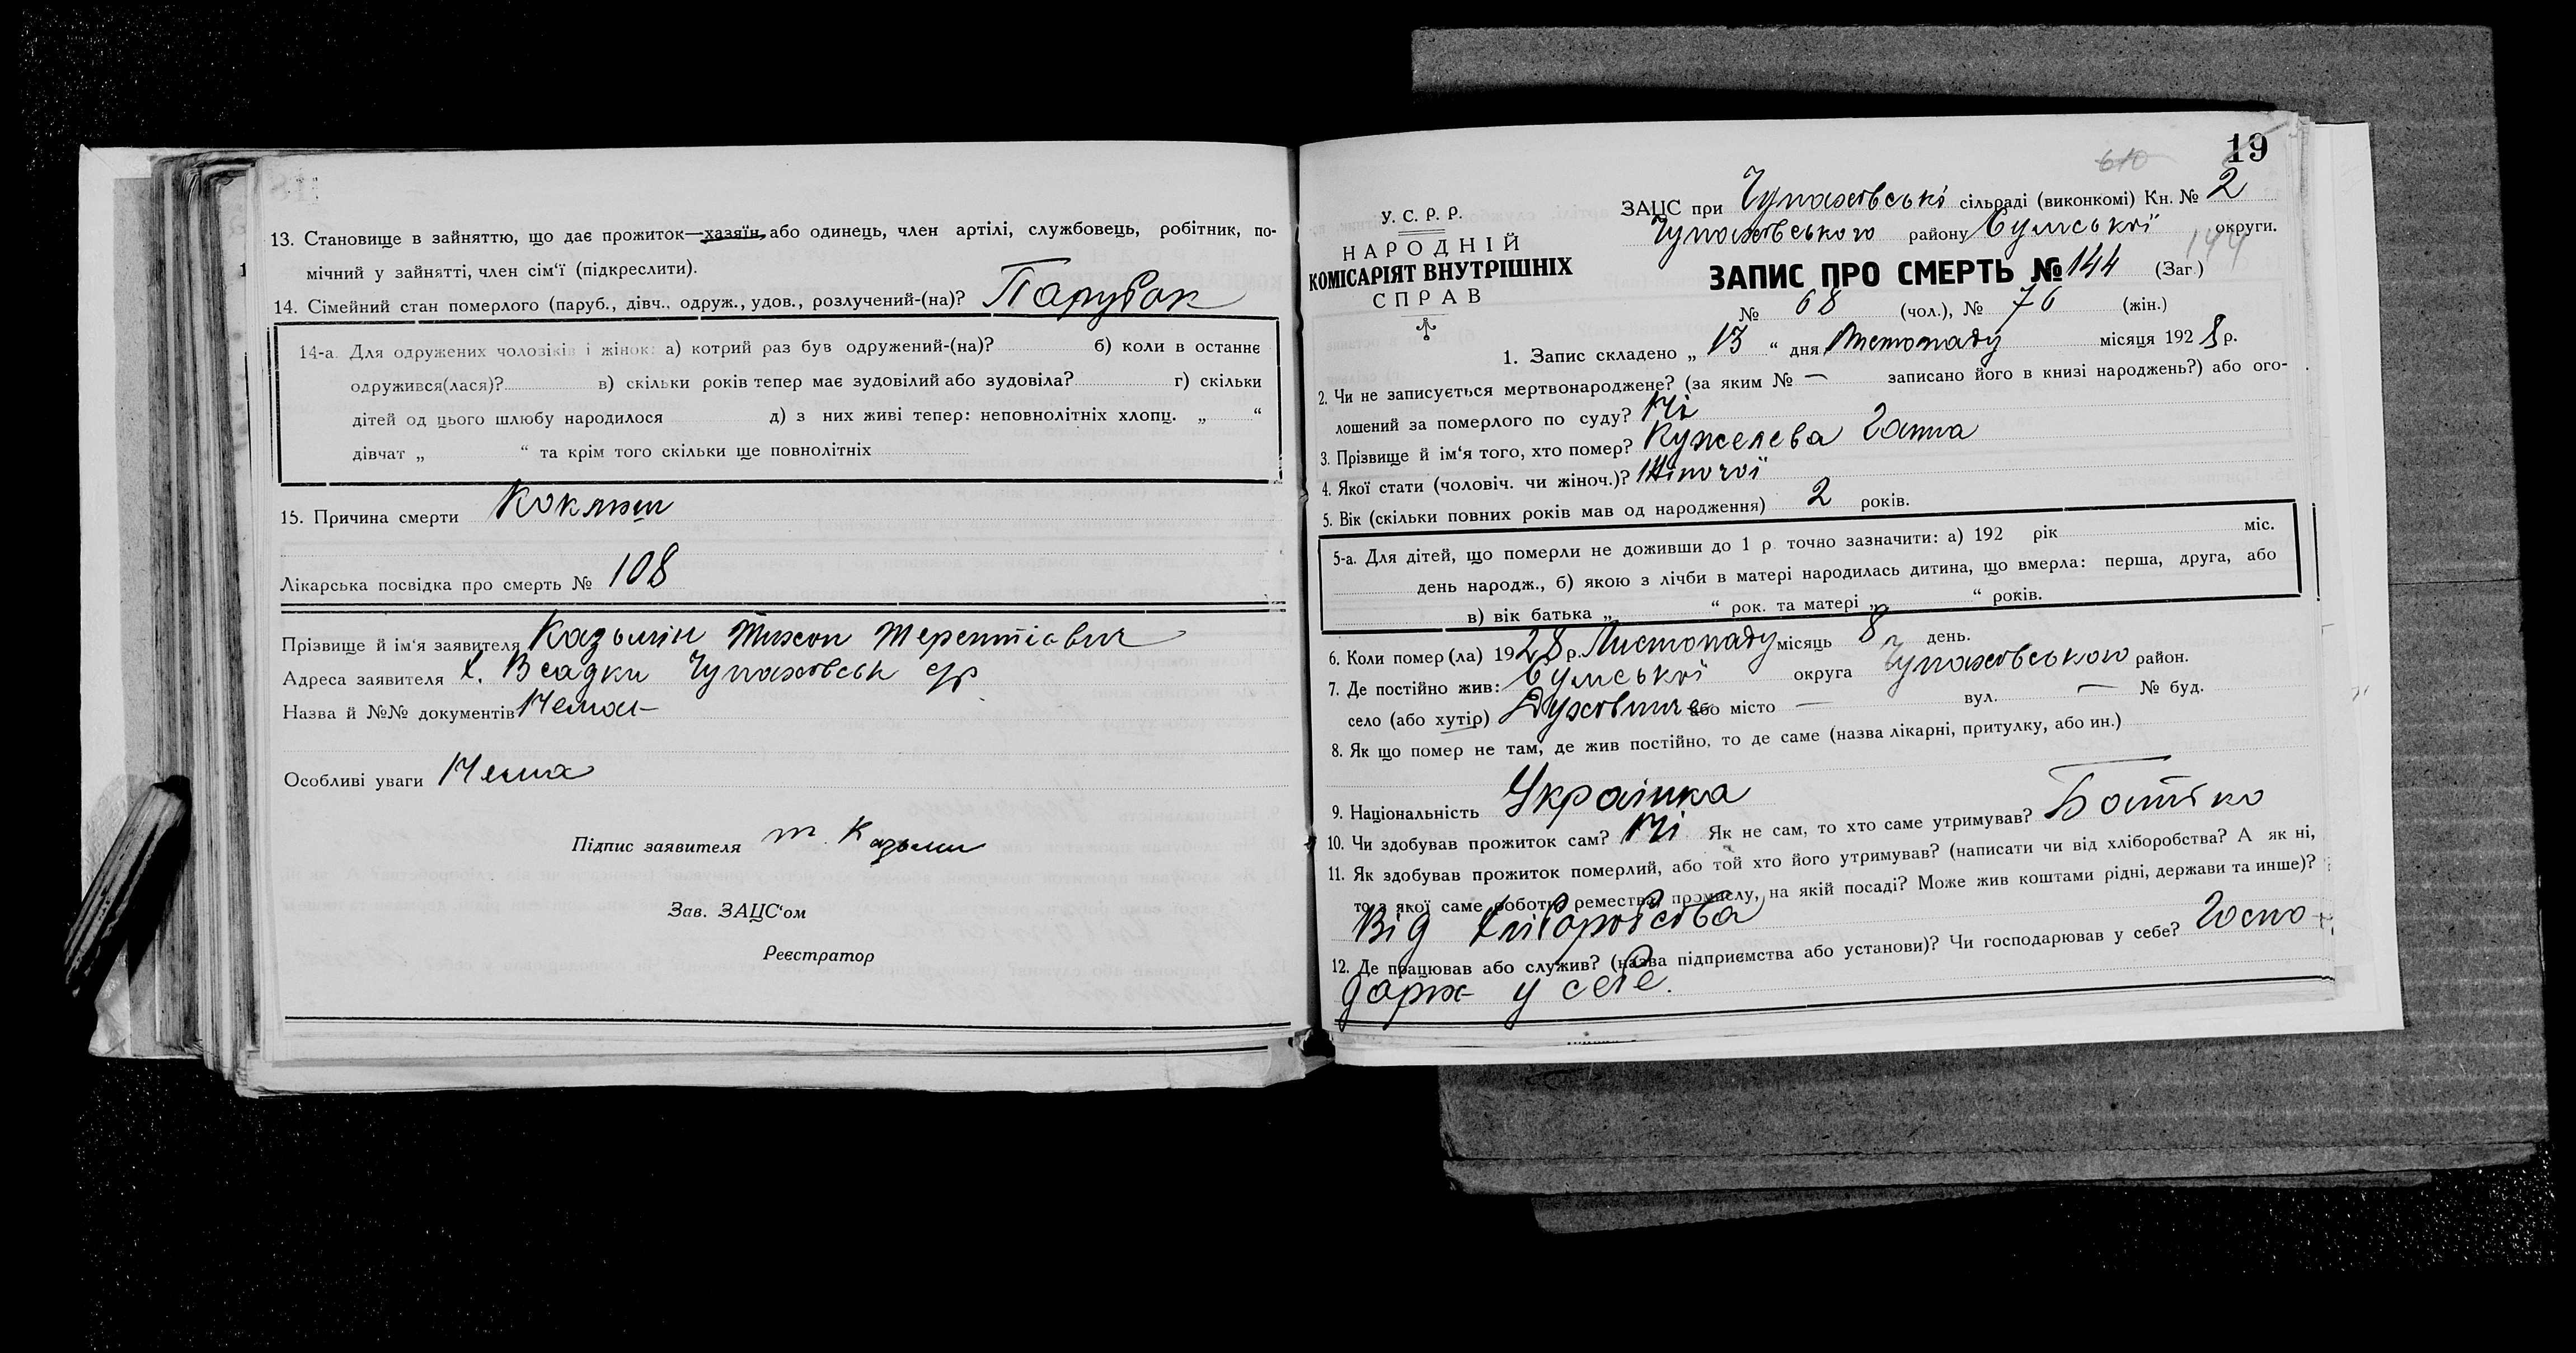 13. Становище в зайняттю, що дає прожиток—хазяїн, або одинець, член артілі, службовець, робітник, по-
мічний у зайнятті, член сім'ї (підкреслити).
14. Сімейний стан померлого (паруб., дівч., одруж., удов., розлучений-(на)? Парубок
14-а. Для одружених чоловіків і жінок: а) котрий раз був одружений-(на)? б) коли в останнє
одружився(лася)? в) скільки років тепер має зудовілий або зудовіла? г) скільки
дітей од цього шлюбу народилося д) з них живі тепер: неповнолітніх хлопц. „ “
дівчат „ “ та крім того скільки ще повнолітніх
15. Причина смерти Коклюш
Лікарська посвідка про смерть № 108
Прізвище й ім'я заявителя Казьмін Тихон Терентієвич
Адреса заявителя х. Всадки Чупахівськ с/р
Назва й №№ документів Немає
Особливі уваги Нема
Підпис заявителя Т. Казьмин
Зав. ЗАЦС'ом
Реєстратор
19
610
У. С. Р. Р.
НАРОДНІЙ
КОМІСАРІЯТ ВНУТРІШНІХ
СПРАВ
ЗАЦС при Чупахівські сільраді (виконкомі) Кн. № 2
Чупахівського району Сумської округи.
144
ЗАПИС ПРО СМЕРТЬ № 144 (Заг.)
№ 68 (чол.), № 76 (жін.)
1. Запис складено „ 13 “ дня Листопаду місяця 1928 р.
2. Чи не записується мертвонароджене? (за яким № — записано його в книзі народжень?) або ого-
лошений за померлого по суду? Ні
3. Прізвище й ім'я того, хто помер? Кужелева Ганна
4. Якої стати (чоловіч. чи жіноч.)? Жіночої
5. Вік (скільки повних років мав од народження) 2 років.
5-а. Для дітей, що померли не доживши до 1 р. точно зазначити: а) 192 рік міс.
день народж., б) якою з лічби в матері народилась дитина, що вмерла: перша, друга, або
в) вік батька „ “ рок. та матері „ “ років.
6. Коли помер(ла) 1928 р. Листопаду місяць 8 день.
7. Де постійно жив: Сумської округа Чупахівського район.
село (або хутір) або місто — вул. — № буд.
8. Як що помер не там, де жив постійно, то де саме (назва лікарні, притулку, або ин.)
9. Національність Українка
10. Чи здобував прожиток сам? Ні Як не сам, то хто саме утримував? Батько
11. Як здобував прожиток померлий, або той хто його утримував? (написати чи від хліборобства? А як ні,
то з якої саме роботи, ремества, промислу, на якій посаді? Може жив коштами рідні, держави та инше)?
Від хліборобства
12. Де працював або служив? (назва підприємства або установи)? Чи господарював у себе? Госпо-
дарює у себе.